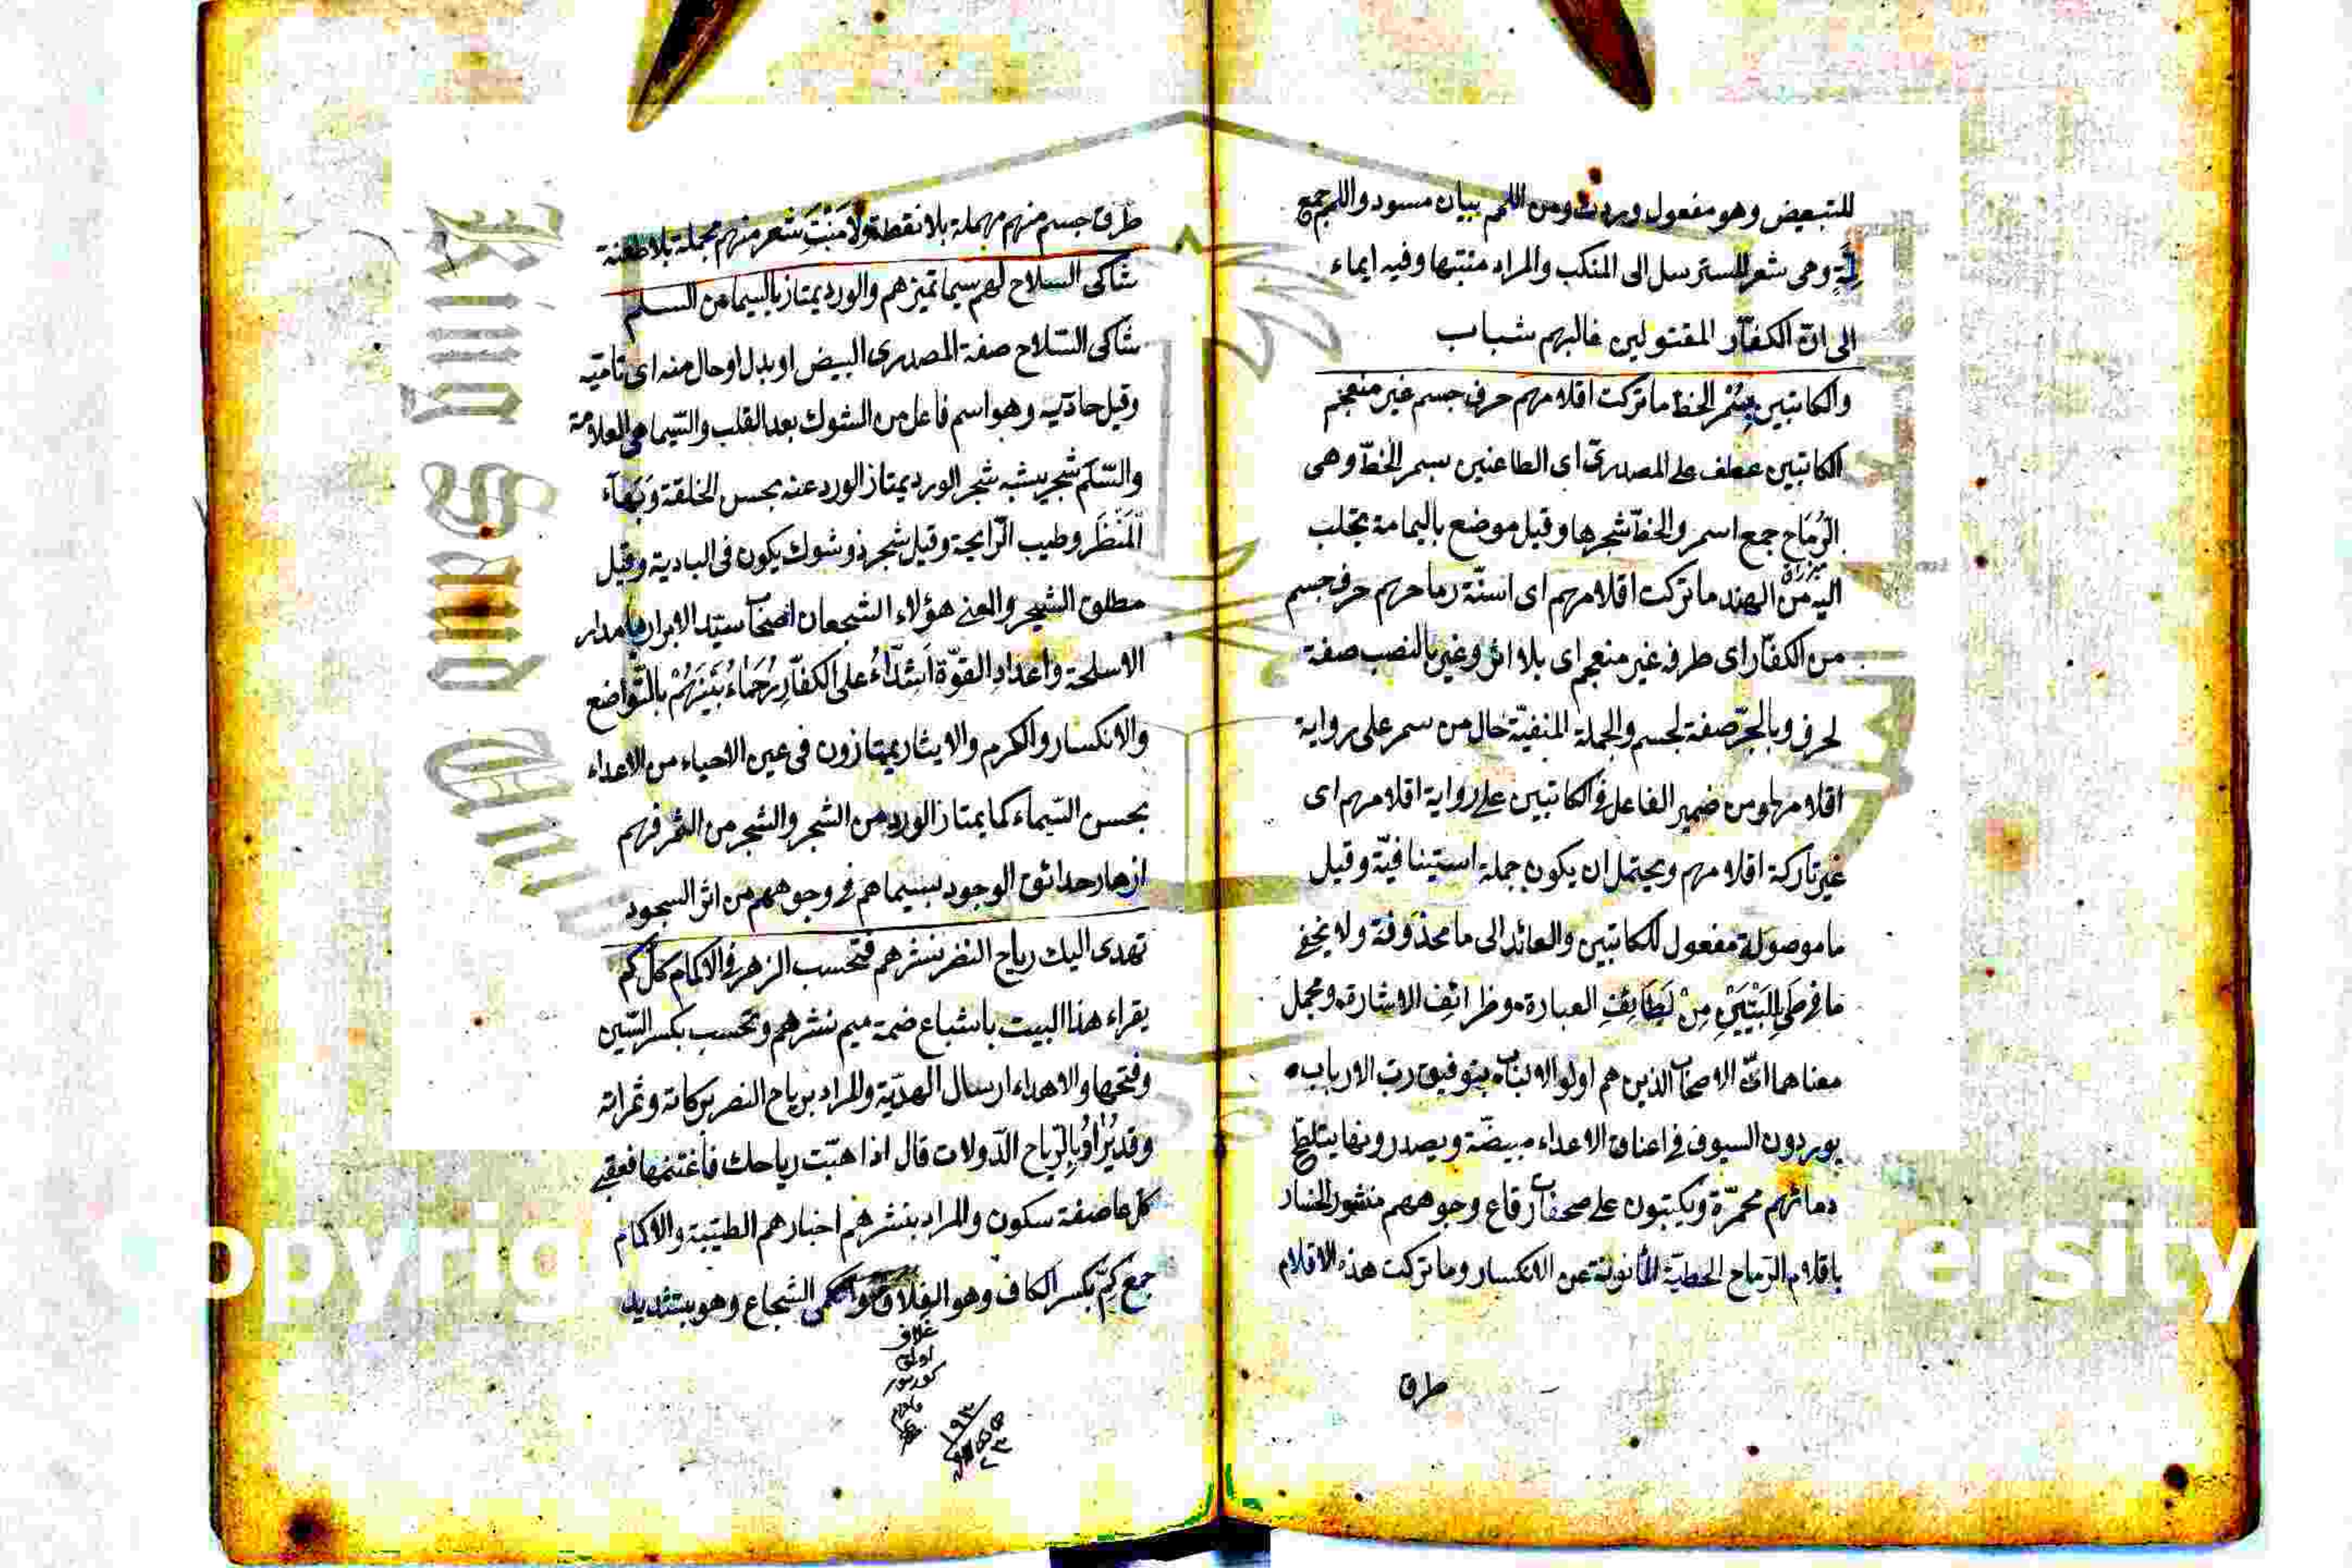 للتبعيض وهو مفعول وردت ومن اللمم بيان مسود واللمم جمع
لمّةٍ وهى شعر المسترسل الى المنكب والمراد منبتها وفيه ايماء
الى انّ الكفّار المقتولين غالبهم شباب
والكاتبين بسُمْر الخط ما تركت اقلامهم حرف جسم غير منعجم
الكاتبين عطف على المصدرى اى الطاعنين بسمر الخطّ وهى
الرِّمَاح جمع اسمر والخطّ شجرها وقيل موضع باليمامة يجلب
اليه من الهند ما تركت اقلامهم اى اسنّة رماحهم حرف جسم
من الكفّار اى طرفه غير منعجم اى بلا اثر وغير بالنصب صفة
لحرف وبالجرّ صفة لجسم والجملة المنفيّة حال من سمر على رواية
اقلامها ومن ضمير الفاعل فى الكاتبين على رواية اقلامهم اى
غير تاركة اقلامهم ويحتمل ان يكون جملة استينافيّة وقيل
ما موصولة مفعول للكاتبين والعائد الى ما محذوفة ولا يخفى
ما فى طىِّ البَيْتَيْنِ مِنْ لَطَائِفِ العبارة وظرائف الاشارة ومجمل
معناهما انّ الاصحاب الذين هم اولوا الالباب بتوفيق ربّ الارباب
يوردون السيوف فى اعناق الاعداء مبيضّة ويصدرونها بتلطّخ
دمائهم محمرّة ويكتبون على صحفات رقاع وجوههم منشور الخسار
باقلام الرّماح الخطيّة المأنونة عن الانكسار وما تركت هذه الاقلام
طرف
طرف جسم منهم مهملة بلا نقطة ولا مَنْبَتَ شعر منهم مجملة بلا طعنة
شاكى السلاح لهم سيما تميزهم والورد يمتاز بالسيما من السلم
شاكى السّلاح صفة المصدرى البيض او بدل او حال منه اى تامّيه
وقيل حادّيه وهو اسم فاعل من الشوك بعد القلب والسّيما هى العلامة
والسّلَم شجر يشبه شجر الورد يمتاز الورد عنه بحسن الخلقة وَبَهَآء
الْمَنْظَر وطيب الرّايحة وقيل شجر ذو شوك يكون فى البادية وقيل
مطلق الشجر والمعنى هؤلاء الشجعان اصحاب سيّد الابرار بامدار
الاسلحة واعدادِ القوّة اَشِدَّاءُ على الكفّارِ رُحَمَاءُ بَيْنَهُمْ بالتّواضع
والانكسار والكرم والايثار يمتازون فى عين الاحياء من الاعداء
بحسن السّيماء كما يمتاز الورد من الشجر والشجر من الثمر فهم
ازهار حدائق الوجود بسيماهم فى وجوههم من اثر السجود
تهدى اليك رياح النصر نشرهم فتحسب الزهر فى الاكمام كلّ كم
يقراء هذا البيت باشباع ضمة ميم نشرهم وتحسب بكسر السّين
وفتحها والاهداء ارسال الهديّة والمراد برياح النصر بركاته وثمراته
وقد يُرَادُ بِالرّياح الدّولات قال اذا هبّت رياحك فاغتنمها فعقبى
كلّ عاصفة سكون والمراد بنشرهم اخبارهم الطيّبة والاكمام
جمع كِمّ بكسر الكاف وهو الغلاف والكمى الشجاع وهو بتشديد
غلاف